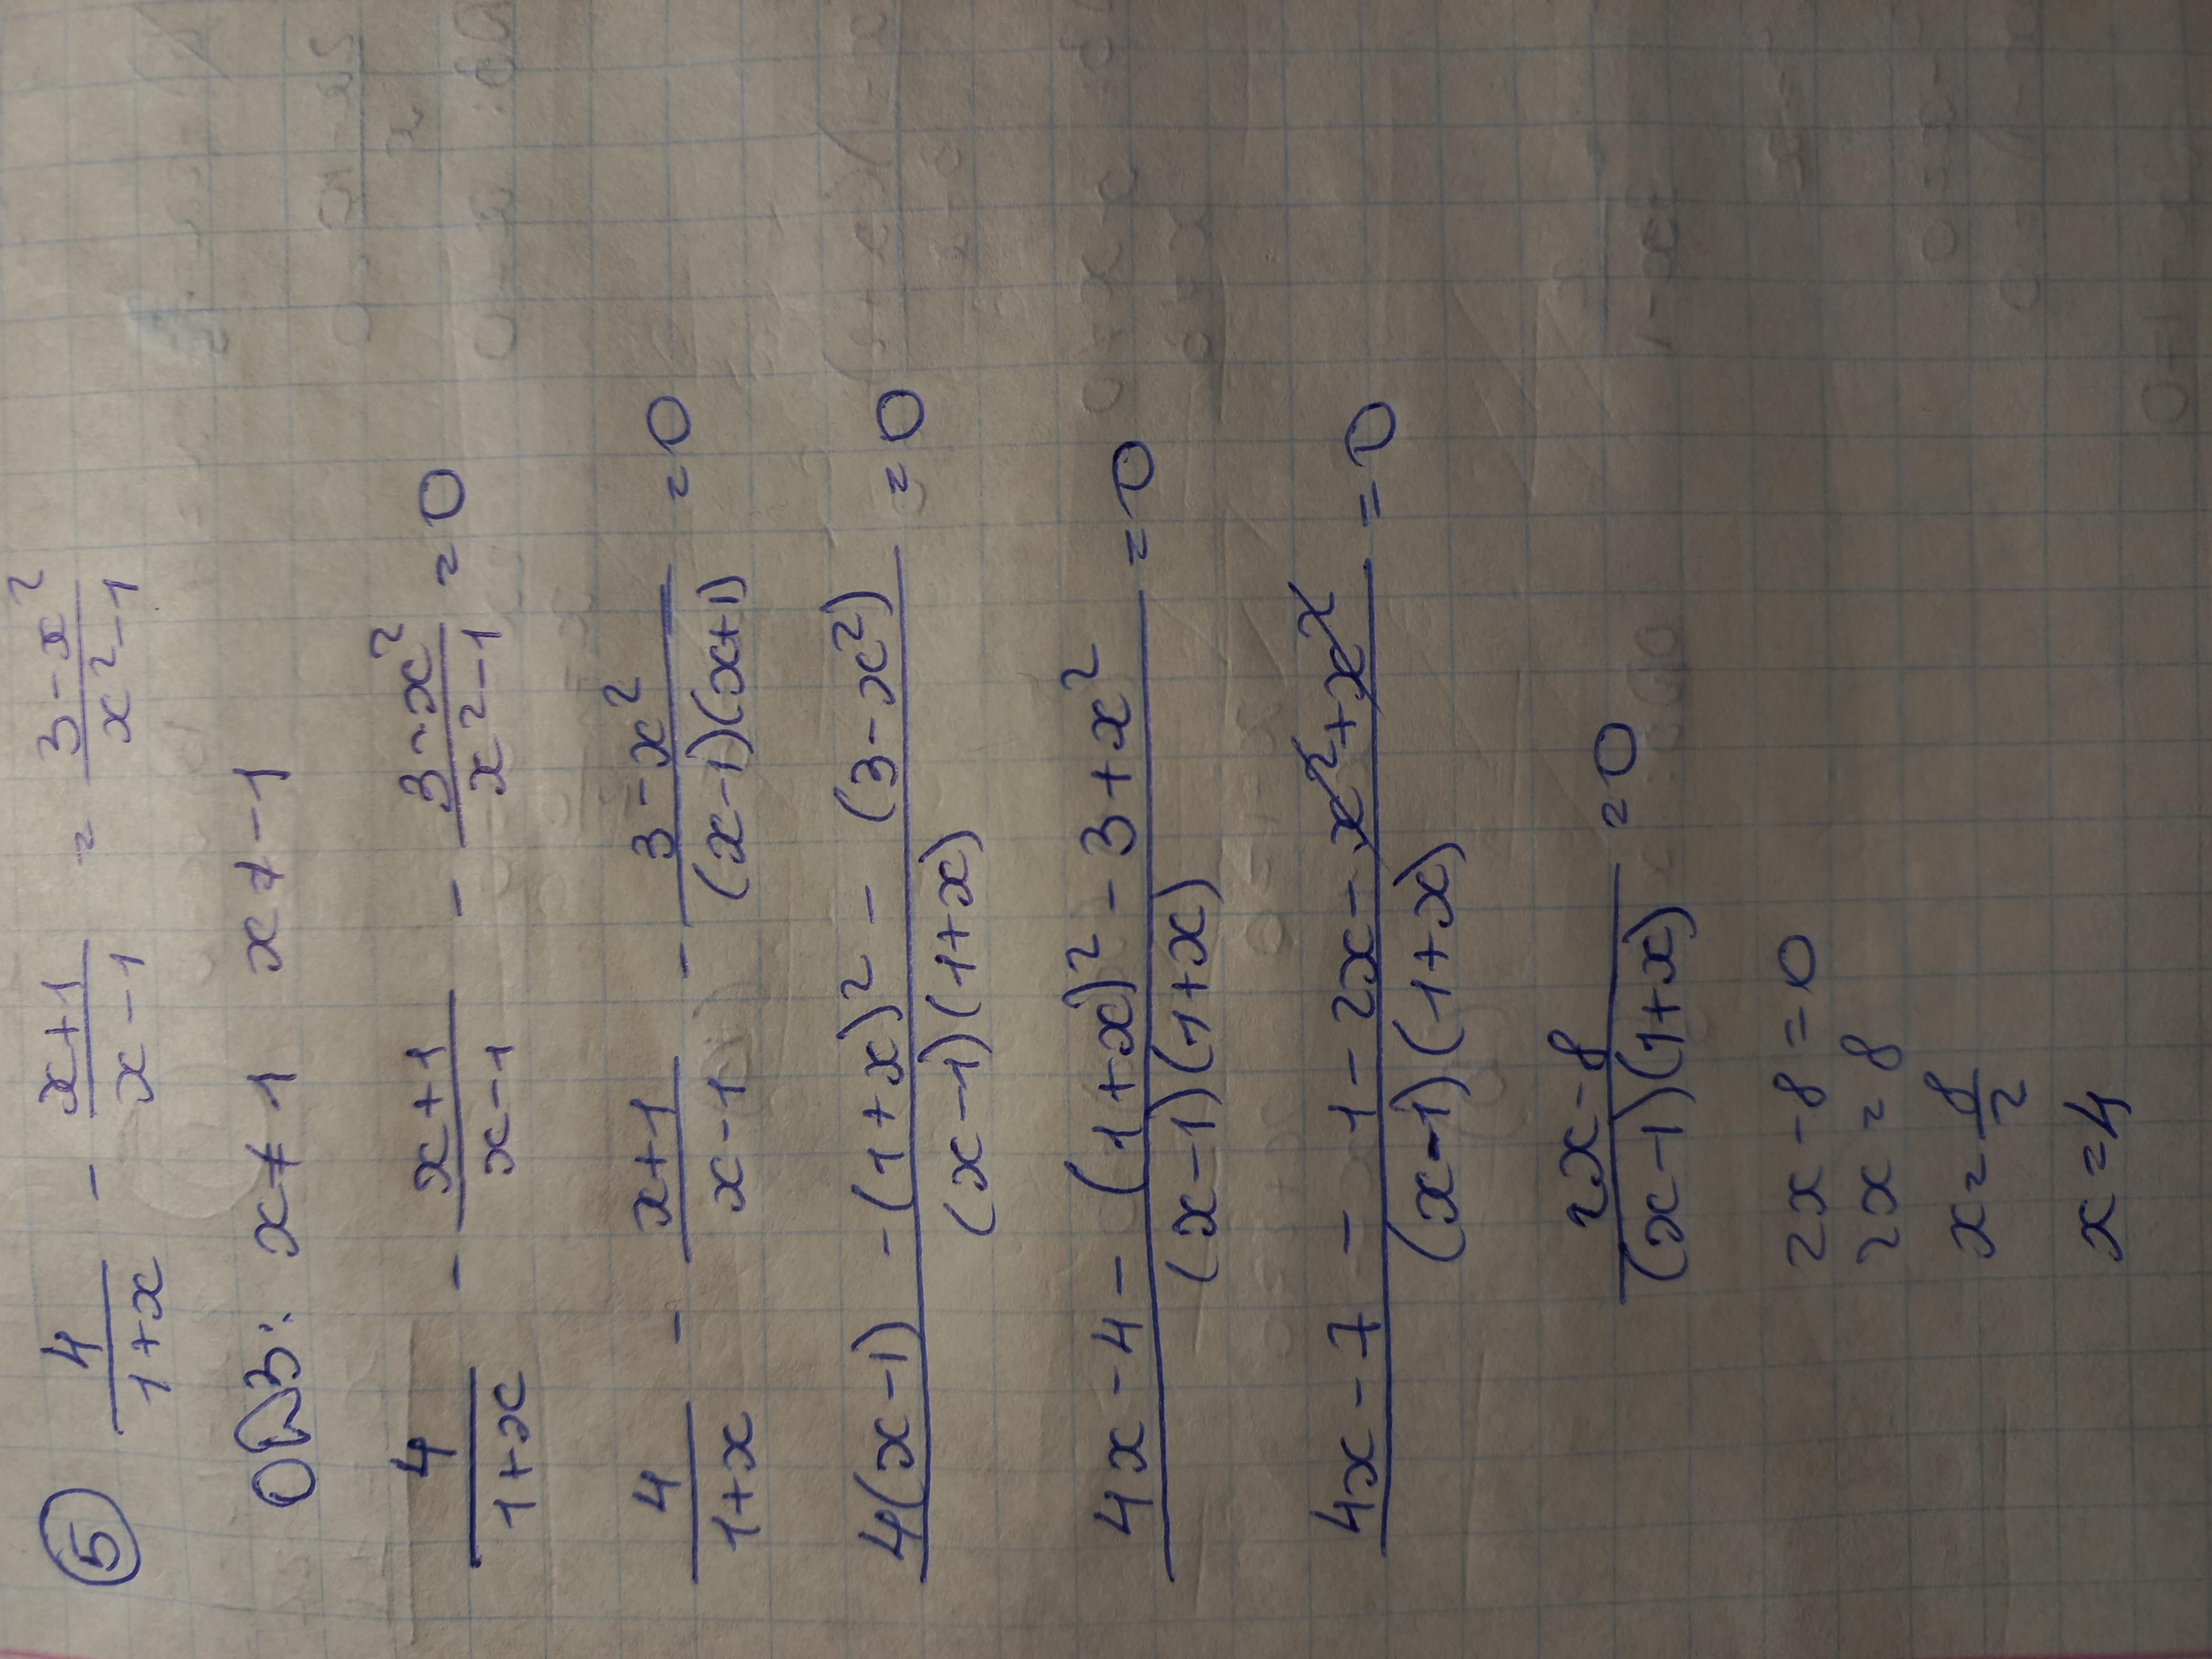 ⑤ 4/(1+x) - (x+1)/(x-1) = (3-x²)/(x²-1)
ОДЗ: x≠1 x≠-1
4/(1+x) - (x+1)/(x-1) - (3-x²)/(x²-1) = 0
4/(1+x) - (x+1)/(x-1) - (3-x²)/((x-1)(x+1)) = 0
(4(x-1) -(1+x)² - (3-x²))/((x-1)(1+x)) = 0
(4x-4-(1+x)²-3+x²)/((x-1)(1+x)) = 0
(4x-7 - 1-2x-x²+x²)/((x-1)(1+x)) = 0
(2x-8)/((x-1)(1+x)) = 0
2x-8=0
2x=8
x=8/2
x=4